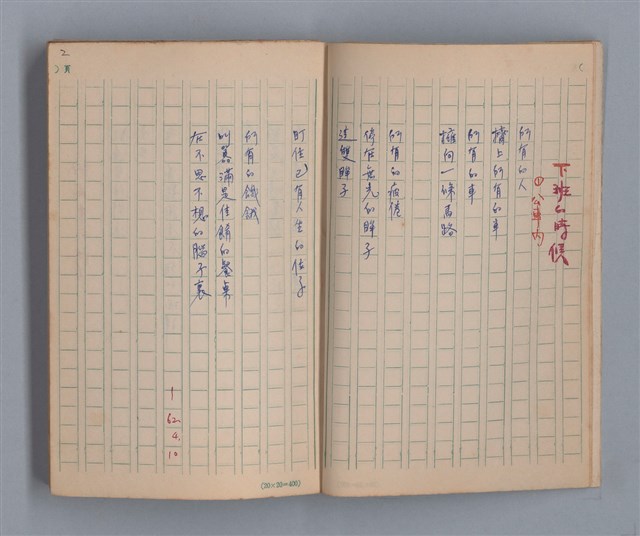 下班的時候
①公車內
所有的人
擠上所有的車
所有的車
擁向一條馬路
所有的疲憊
停在無光的眸子
這雙眸子
盯住已有人坐的位子
所有的飢餓
叫著滿是佳餚的餐桌
在不思不想的腦子裏
1
62.
4.
10
2
頁
(20×20=400)